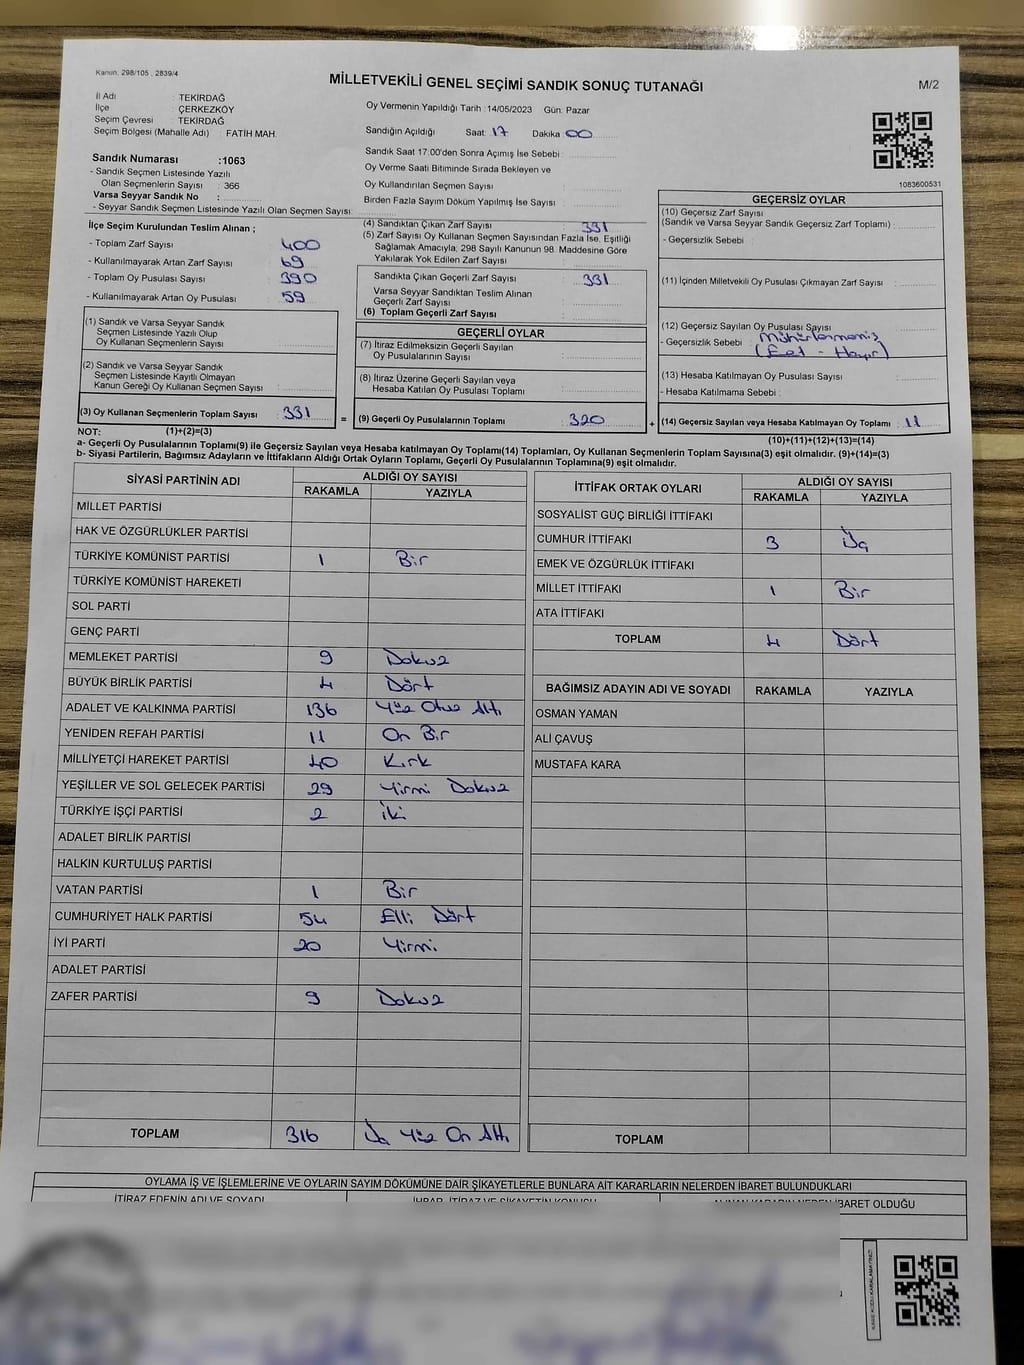 Kanun, 298/105 , 2839/4
MİLLETVEKİLİ GENEL SEÇİMİ SANDIK SONUÇ TUTANAĞI
M/2
İl Adı : TEKİRDAĞ
İlçe : ÇERKEZKÖY
Seçim Çevresi : TEKİRDAĞ
Seçim Bölgesi (Mahalle Adı) : FATİH MAH.
Sandık Numarası :1063
- Sandık Seçmen Listesinde Yazılı
Olan Seçmenlerin Sayısı : 366
Varsa Seyyar Sandık No :
- Seyyar Sandık Seçmen Listesinde Yazılı Olan Seçmen Sayısı:
Oy Vermenin Yapıldığı Tarih :14/05/2023 Gün: Pazar
Sandığın Açıldığı Saat: 17 Dakika: 00
Sandık Saat 17:00'den Sonra Açımış İse Sebebi :
Oy Verme Saati Bitiminde Sırada Bekleyen ve
Oy Kullandırılan Seçmen Sayısı :
Birden Fazla Sayım Döküm Yapılmış İse Sayısı :
1083600531
İlçe Seçim Kurulundan Teslim Alınan ;
- Toplam Zarf Sayısı : 400
- Kullanılmayarak Artan Zarf Sayısı : 69
- Toplam Oy Pusulası Sayısı : 390
- Kullanılmayarak Artan Oy Pusulası : 59
(1) Sandık ve Varsa Seyyar Sandık
Seçmen Listesinde Yazılı Olup
Oy Kullanan Seçmenlerin Sayısı :
(2) Sandık ve Varsa Seyyar Sandık
Seçmen Listesinde Kayıtlı Olmayan
Kanun Gereği Oy Kullanan Seçmen Sayısı :
(3) Oy Kullanan Seçmenlerin Toplam Sayısı : 331
(4) Sandıktan Çıkan Zarf Sayısı : 331
(5) Zarf Sayısı Oy Kullanan Seçmen Sayısından Fazla İse, Eşitliği
Sağlamak Amacıyla; 298 Sayılı Kanunun 98. Maddesine Göre
Yakılarak Yok Edilen Zarf Sayısı :
Sandıkta Çıkan Geçerli Zarf Sayısı : 331
Varsa Seyyar Sandıktan Teslim Alınan
Geçerli Zarf Sayısı :
(6) Toplam Geçerli Zarf Sayısı :
GEÇERLİ OYLAR
(7) İtiraz Edilmeksizin Geçerli Sayılan
Oy Pusulalarının Sayısı :
(8) İtiraz Üzerine Geçerli Sayılan veya
Hesaba Katılan Oy Pusulası Toplamı :
= (9) Geçerli Oy Pusulalarının Toplamı : 320
GEÇERSİZ OYLAR
(10) Geçersiz Zarf Sayısı
(Sandık ve Varsa Seyyar Sandık Geçersiz Zarf Toplamı) :
- Geçersizlik Sebebi :
(11) İçinden Milletvekili Oy Pusulası Çıkmayan Zarf Sayısı :
(12) Geçersiz Sayılan Oy Pusulası Sayısı :
- Geçersizlik Sebebi : Mühürlenmemiş
(Evet - Hayır)
(13) Hesaba Katılmayan Oy Pusulası Sayısı :
- Hesaba Katılmama Sebebi :
+ (14) Geçersiz Sayılan veya Hesaba Katılmayan Oy Toplamı : 11
NOT: (1)+(2)=(3)
(10)+(11)+(12)+(13)=(14)
a- Geçerli Oy Pusulalarının Toplamı(9) ile Geçersiz Sayılan veya Hesaba katılmayan Oy Toplamı(14) Toplamları, Oy Kullanan Seçmenlerin Toplam Sayısına(3) eşit olmalıdır. (9)+(14)=(3)
b- Siyasi Partilerin, Bağımsız Adayların ve İttifakların Aldığı Ortak Oyların Toplamı, Geçerli Oy Pusulalarının Toplamına(9) eşit olmalıdır.
SİYASİ PARTİNİN ADI ALDIĞI OY SAYISI
RAKAMLA YAZIYLA
MİLLET PARTİSİ
HAK VE ÖZGÜRLÜKLER PARTİSİ
TÜRKİYE KOMÜNİST PARTİSİ 1 Bir
TÜRKİYE KOMÜNİST HAREKETİ
SOL PARTİ
GENÇ PARTİ
MEMLEKET PARTİSİ 9 Dokuz
BÜYÜK BİRLİK PARTİSİ 4 Dört
ADALET VE KALKINMA PARTİSİ 136 Yüz Otuz Altı
YENİDEN REFAH PARTİSİ 11 On Bir
MİLLİYETÇİ HAREKET PARTİSİ 40 Kırk
YEŞİLLER VE SOL GELECEK PARTİSİ 29 Yirmi Dokuz
TÜRKİYE İŞÇİ PARTİSİ 2 İki
ADALET BİRLİK PARTİSİ
HALKIN KURTULUŞ PARTİSİ
VATAN PARTİSİ 1 Bir
CUMHURİYET HALK PARTİSİ 54 Elli Dört
İYİ PARTİ 20 Yirmi
ADALET PARTİSİ
ZAFER PARTİSİ 9 Dokuz
TOPLAM 316 Üç Yüz On Altı
İTTİFAK ORTAK OYLARI ALDIĞI OY SAYISI
RAKAMLA YAZIYLA
SOSYALİST GÜÇ BİRLİĞİ İTTİFAKI
CUMHUR İTTİFAKI 3 Üç
EMEK VE ÖZGÜRLÜK İTTİFAKI
MİLLET İTTİFAKI 1 Bir
ATA İTTİFAKI
TOPLAM 4 Dört
BAĞIMSIZ ADAYIN ADI VE SOYADI RAKAMLA YAZIYLA
OSMAN YAMAN
ALİ ÇAVUŞ
MUSTAFA KARA
TOPLAM
OYLAMA İŞ VE İŞLEMLERİNE VE OYLARIN SAYIM DÖKÜMÜNE DAİR ŞİKAYETLERLE BUNLARA AİT KARARLARIN NELERDEN İBARET BULUNDUKLARI
İTİRAZ EDENİN ADI VE SOYADI İHBAR, İTİRAZ VE ŞİKAYETİN KONUSU ALINAN KARARIN NEDEN İBARET OLDUĞU